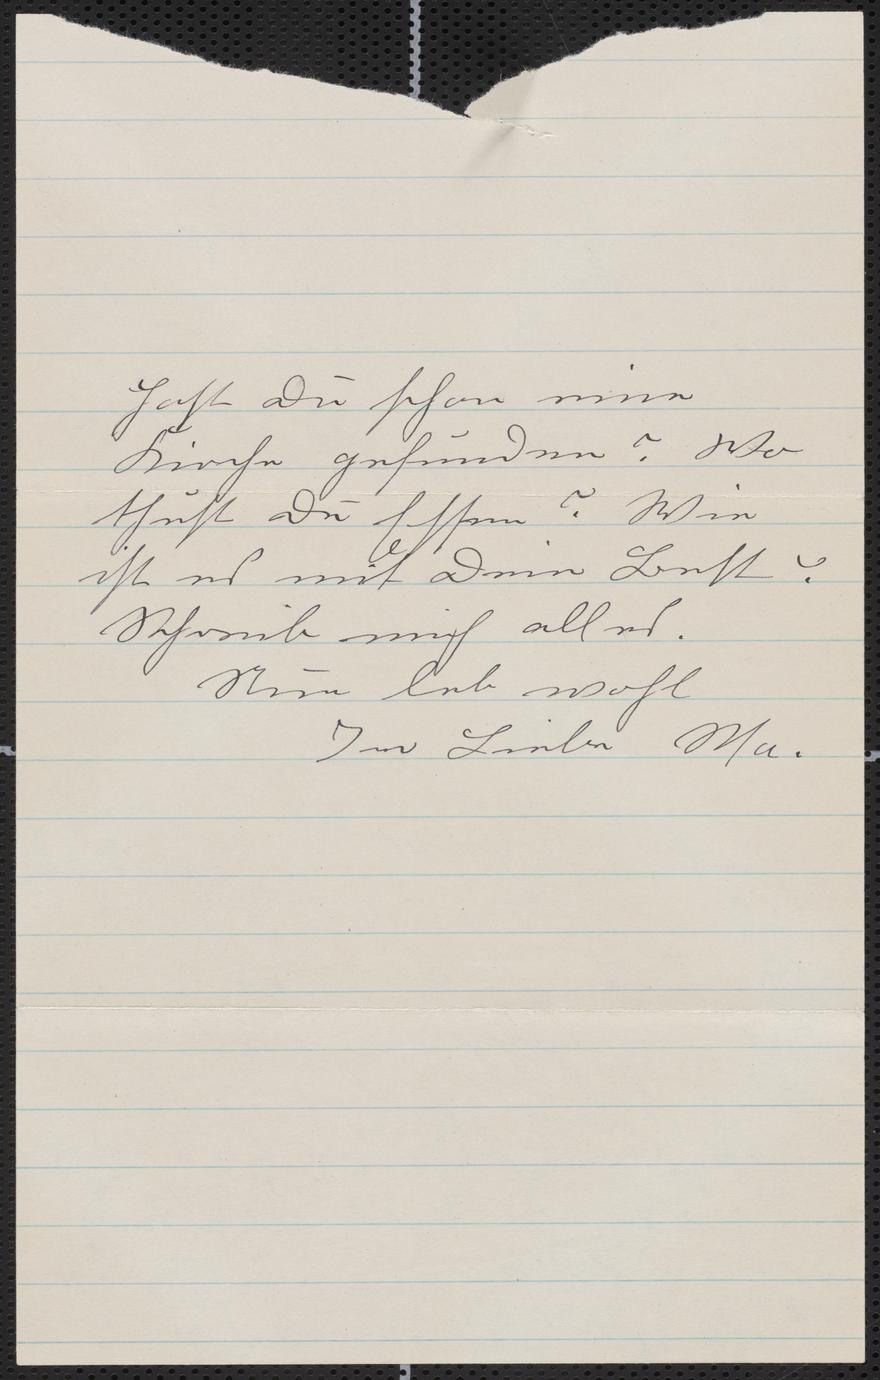 Hast Du schon eine
Kirche gefunden? Wo
thust Du Essen? Wie
ist es mit Dein Bett?
Schreib mich alles.
Nun leb wohl
Liebe Ma.